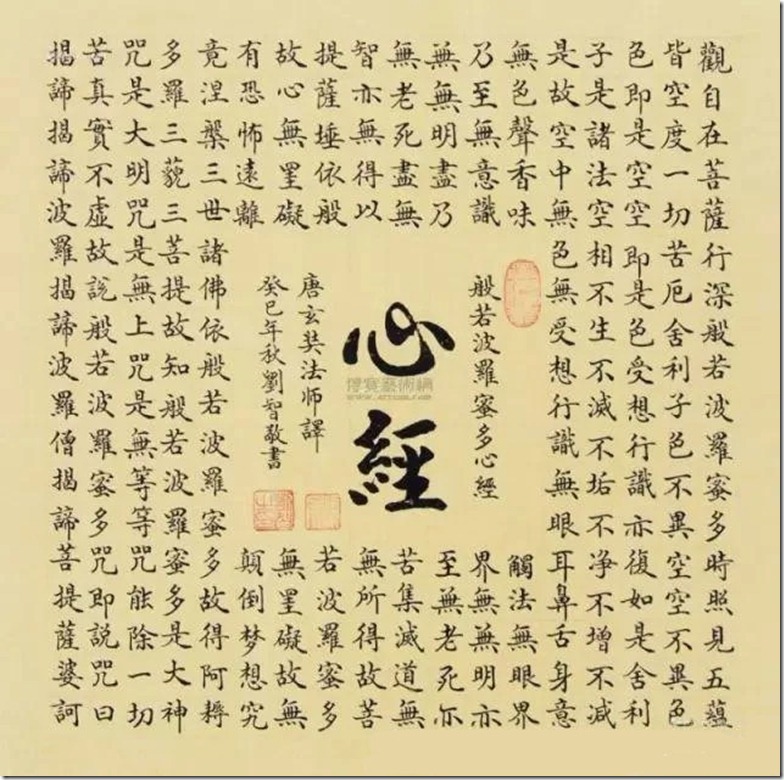 觀自在菩薩行深般若波羅蜜多時照見五蘊
皆空度一切苦厄舍利子色不異空空不異色
色即是空空即是色受想行識亦復如是舍利
子是諸法空相不生不滅不垢不净不增不減
是故空中無色無受想行識無眼耳鼻舌身意
無色聲香味
觸法無眼界
乃至無意識
界無無明亦
無無明盡乃
至無老死亦
無老死盡無
苦集滅道無
智亦無得以
無所得故菩
提薩埵依般
若波羅蜜多
故心無罣礙
無罣礙故無
有恐怖遠離
顛倒梦想究
竟涅槃三世諸佛依般若波羅蜜多故得阿耨
多羅三藐三菩提故知般若波羅蜜多是大神
咒是大明咒是無上咒是無等等咒能除一切
苦真實不虛故說般若波羅蜜多咒即說咒曰
揭諦揭諦波羅揭諦波羅僧揭諦菩提薩婆訶
般若波羅蜜多心經
心經
唐玄奘法師譯
癸巳年秋劉智敬書
博寶藝術網